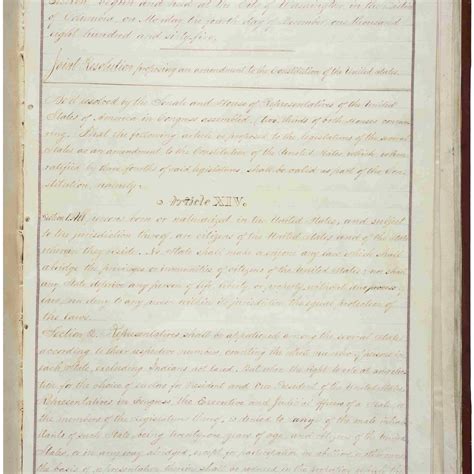 begun and held at the City of Washington, in the District
of Columbia, on Monday the fourth day of December, one thousand
eight hundred and sixty-five,
Joint Resolution proposing an amendment to the Constitution of the United States.
Be it resolved by the Senate and House of Representatives of the United
States of America in Congress assembled, (two thirds of both Houses concur-
ring,) That the following article be proposed to the legislatures of the several
States as an amendment to the Constitution of the United States, which, when
ratified by three fourths of said legislatures, shall be valid as part of the Con-
stitution, namely:
Article XIV.
Section 1. All persons born or naturalized in the United States, and subject
to the jurisdiction thereof, are citizens of the United States and of the State
wherein they reside. No State shall make or enforce any law which shall
abridge the privileges or immunities of citizens of the United States; nor shall
any State deprive any person of life, liberty, or property, without due process of
law; nor deny to any person within its jurisdiction the equal protection of
the laws.
Section 2. Representatives shall be apportioned among the several States
according to their respective numbers, counting the whole number of persons
in each State, excluding Indians not taxed. But when the right to vote at any elec-
tion for the choice of electors for President and Vice President of the United States,
Representatives in Congress, the Executive and Judicial officers of a State, or
the members of the Legislature thereof, is denied to any of the male inhab-
itants of such State, being twenty-one years of age, and citizens of the United
States, or in any way abridged, except for participation in rebellion, or other crime,
the basis of representation therein shall be reduced in the